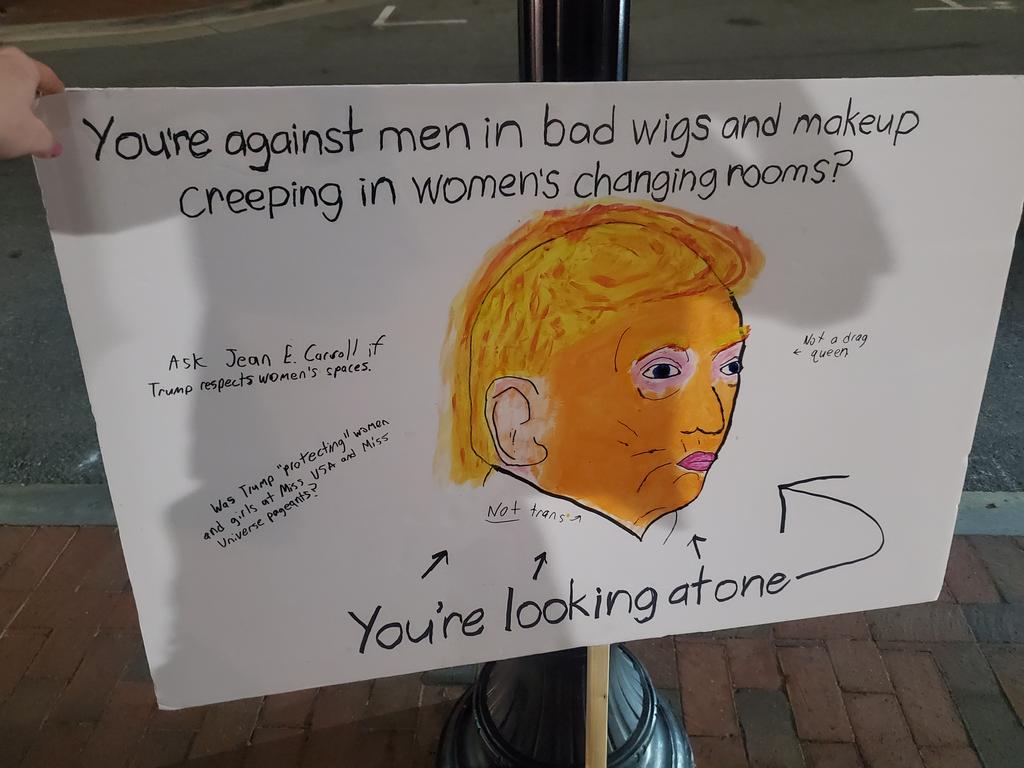 You're against men in bad wigs and makeup
creeping in women's changing rooms?
Ask Jean E. Carroll if
Trump respects women's spaces.
Not a drag
← queen
Was Trump "protecting" women
and girls at Miss USA and Miss
Universe pageants?
Not trans→
You're looking at one